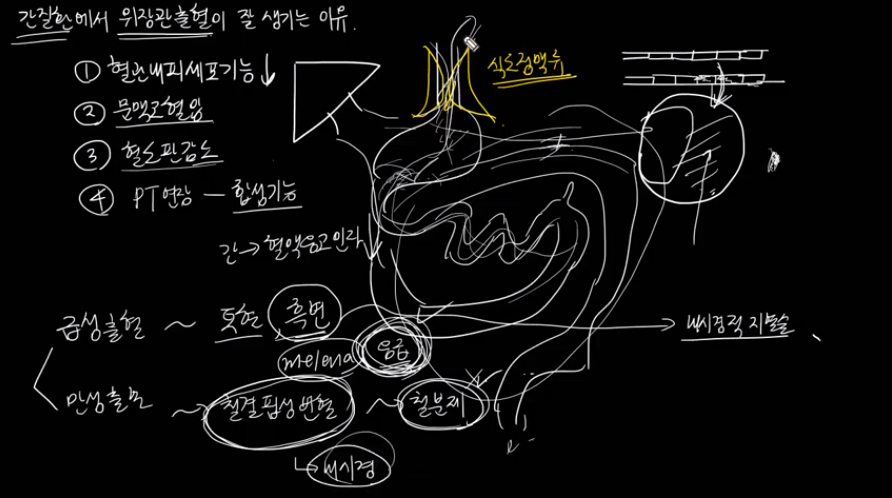 간질환에서 위장관출혈이 잘 생기는 이유.
① 혈관내피세포기능↓
② 문맥고혈압
③ 혈소판감소
④ PT연장 – 합성기능
간→혈액응고인자
식도정맥류
급성출혈 ~ 토혈 흑변
melena 응급
→ 내시경적 지혈술
만성출혈 ~ 철결핍성빈혈 ~ 철분제
↳ 내시경